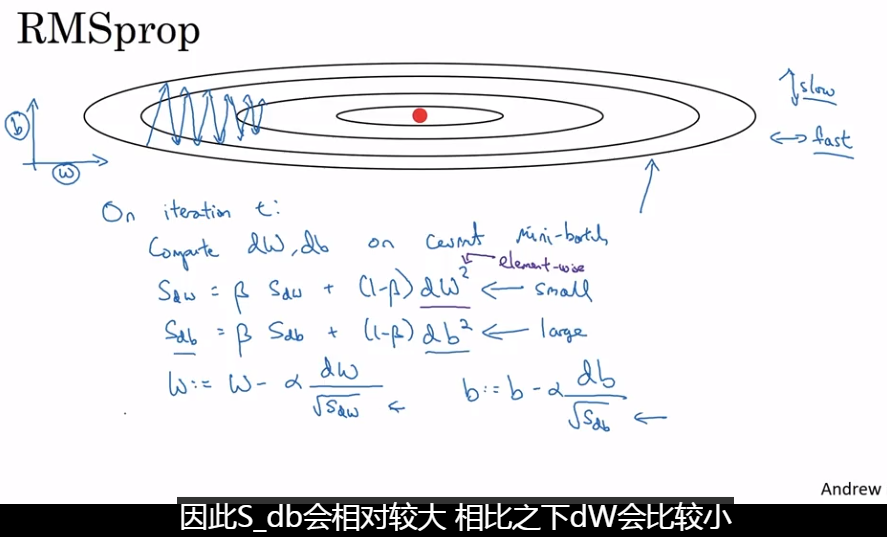 RMSprop
slow
b
fast
w
On iteration t:
Compute dW, db on current mini-batch
element-wise
S_dw = β S_dw + (1-β) dW² ← small
S_db = β S_db + (1-β) db² ← large
W := W - α dW/√S_dw ← b := b - α db/√S_db ←
Andrew
因此S_db会相对较大 相比之下dW会比较小